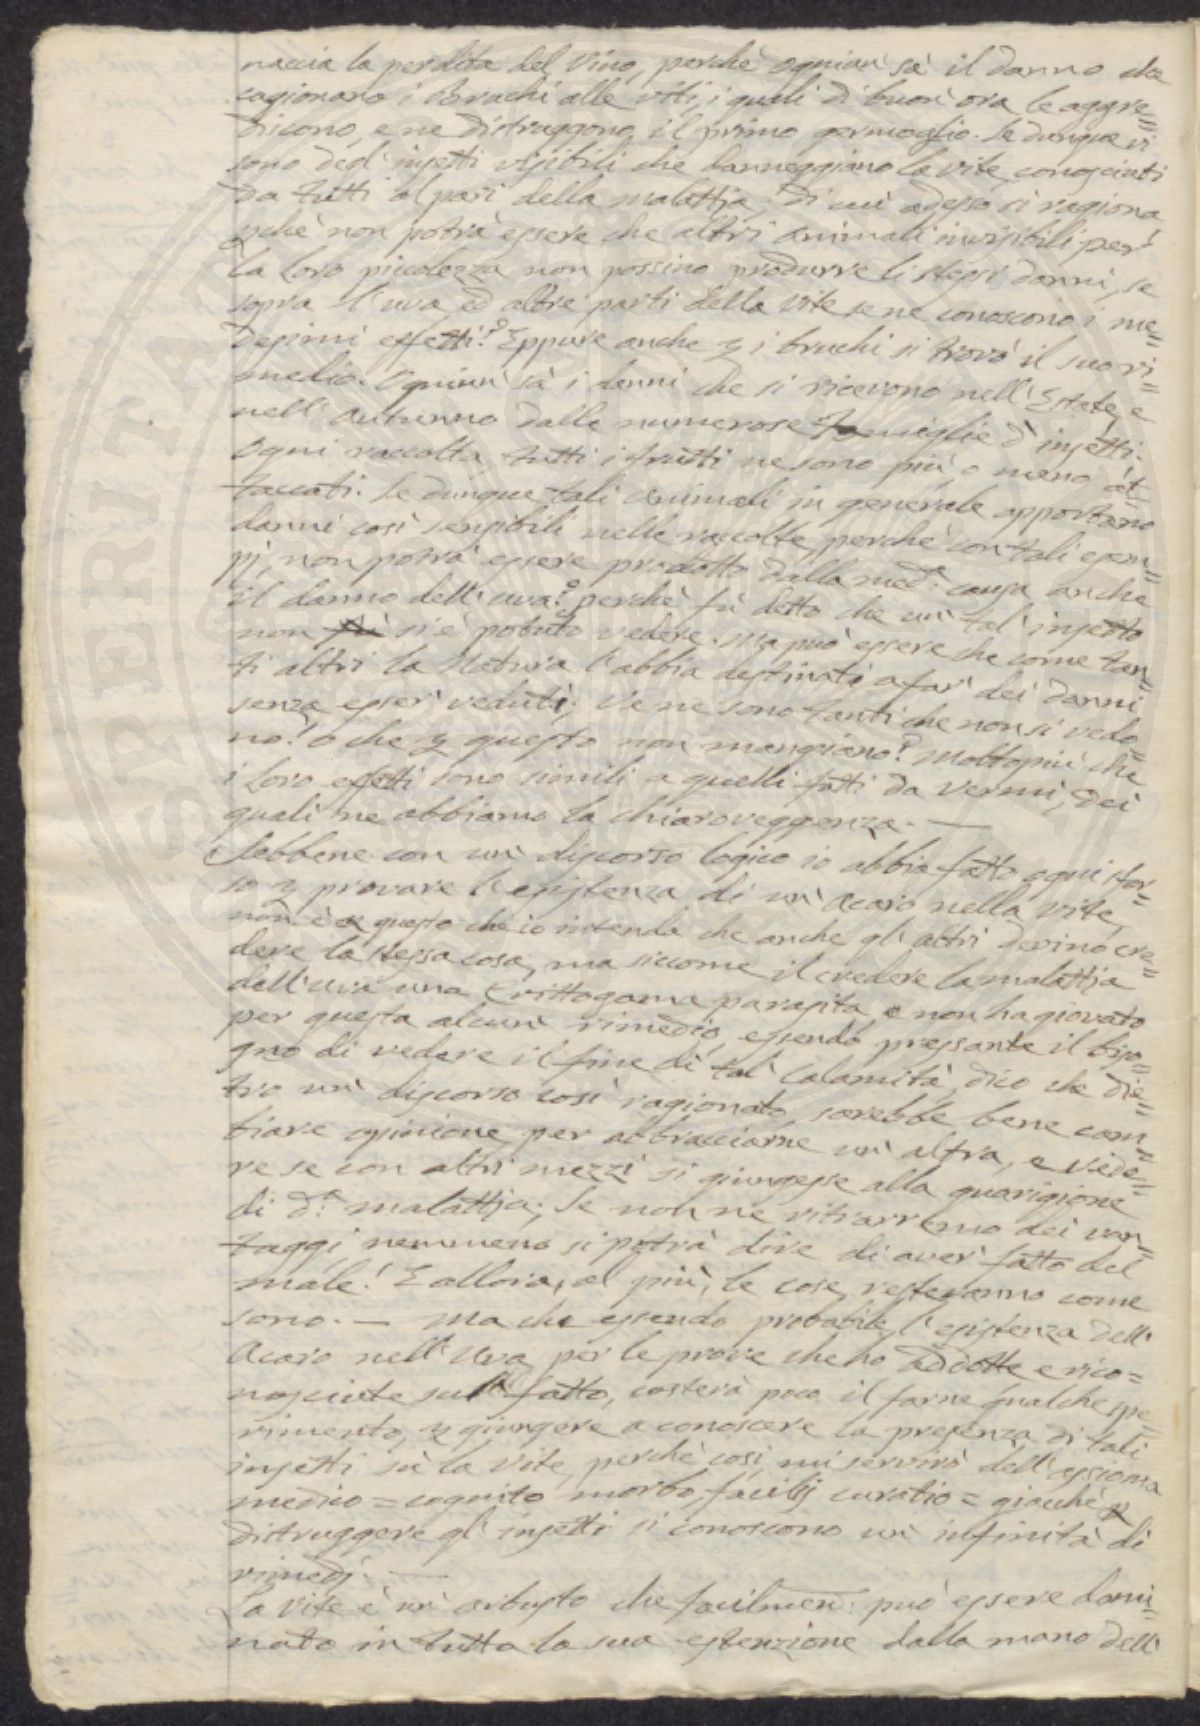 naccia la perdita del Vino, perchè ogniun' sà il danno che
cagionano i Bruchi alle viti, i quali di buon' ora le aggre=
discono, e ne distruggono il primo germoglio. Se dunque vi
sono degl' insetti visibili che danneggiano la vite, conosciuti
da tutti al pari della malattia, di cui adesso si ragiona,
pchè non potrà essere che altri animali invisibili per
la loro piccolezza non possino produrre li stessi danni, se
sopra l'uva ed altre parti della vite se ne conoscono i me=
desimi effetti? Eppure anche p i bruchi si trovò il suo ri=
medio. Ogniun' sà i danni che si ricevono nell' Estate, e
nell' Autunno dalle numerose famiglie d' insetti.
Ogni raccolta, tutti i frutti ne sono più, o meno at=
taccati. Se dunque tali animali in generale apportano
danni così sensibili nelle raccolte, perchè con tali esem=
pj, non potrà essere prodotto dalla med.a causa anche
il danno dell' uva? perchè fù detto che un' tal' insetto
non fù si è potuto vedere. Ma può essere che come tan=
ti altri la Natura l'abbia destinati a far' dei danni
senza esser' veduti; Ve ne sono tanti che non si vedo=
no! o che p questo non mangiano? Molto più che
i loro effetti sono simili a quelli fatti da vermi, dei
quali ne abbiamo la chiaroveggenza. —
Sebbene con un' discorso logico io abbia fatto ogni sfor=
zo p provare l'esistenza di un' acaro nella vite,
non è p questo che io intenda che anche gl' altri devino cre=
dere la stessa cosa, ma siccome il credere la malattia
dell'uva una Crittogama parasita, e non ha giovato
per questa alcun' rimedio, essendo pressante il biso=
gno di vedere il fine di tal' Calamità, dico che die=
tro un' discorso così ragionato, sarebbe bene cam=
biare opinione per abbracciarne un' altra, e vede=
re se con altri mezzi si giungesse alla guarigione
di d.a malattia; Se non ne ritrarremo dei van=
taggi, nemmeno si potrà dire di aver' fatto del
male! E allora, al più, le cose resteranno come
sono. — Ma che essendo probabile l' esistenza dell'
Acaro nell' Uva, per le prove che ho addotte e rico=
nosciute sul fatto, costerà poco il farne qualche spe=
rimento, p giungere a conoscere la presenza di tali
insetti sù la vite, perchè così mi servirò dell' assioma
medico = cognito morbo, facilis curatio = giacchè p
distruggere gl' insetti si conoscono un' infinità di
rimedj. —
La vite è un' arbusto che facilmen. può essere domi=
nato in tutta la sua estenzione dalla mano dell'